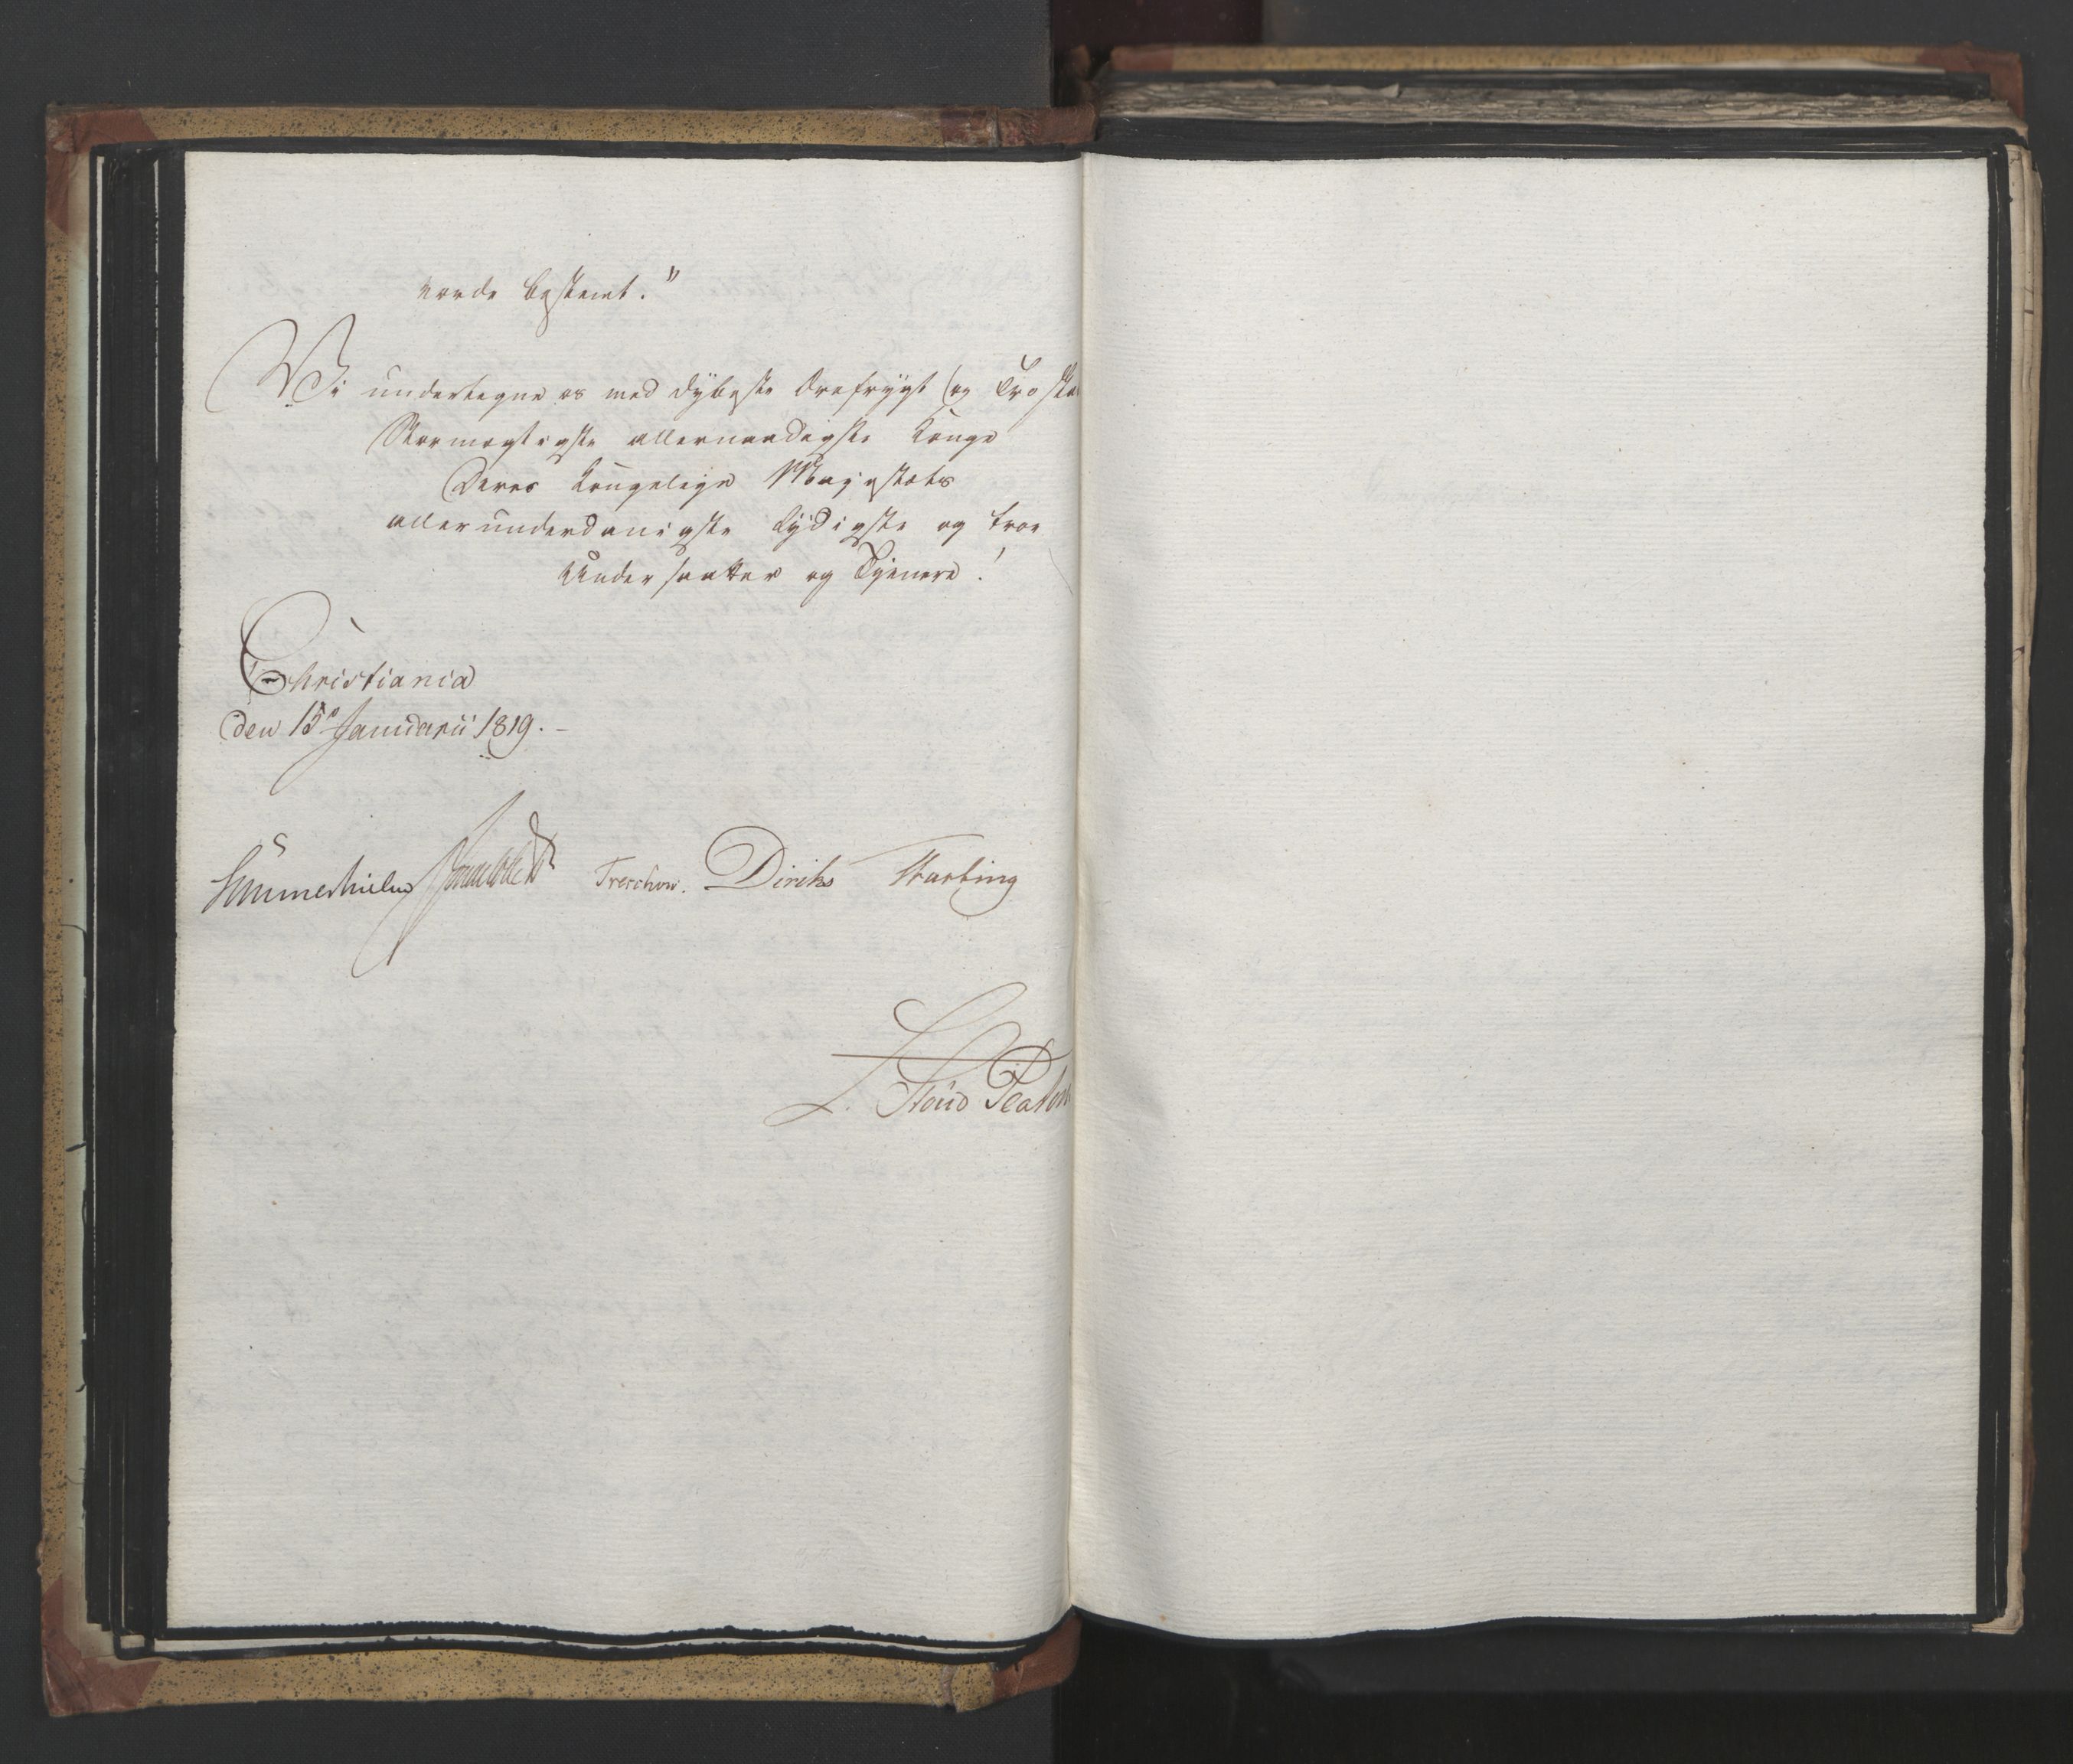 vorde bestemt."
Vi undertegne os med dybeste Ærefrygt og Troskab
Stormægtigste allernaadigste Konge
Deres Kongelige Majestæts
allerunderdanigste lydigste og troe
Undersaatter og Tjenere!
Christiania
den 15de Januarii 1819. -
Sommerhielm Treschow. Diriks Fasting
L. Stoud Platou